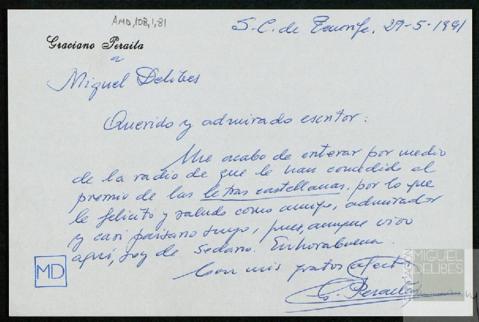 AMD,108,1,81
S.C. de Tenerife, 29-5-1991
Graciano Peraita
a
Miguel Delibes
Querido y admirado escritor:
Me acabo de enterar por medio
de la radio de que le han concedido el
premio de las letras castellanas, por lo que
le felicito y saludo como amigo, admirador
y casi paisano suyo, pues, aunque vivo
aquí, soy de Sedano. Enhorabuena.
Con mis gratos afectos
G. Peraita
MD
MIGUEL
DELIBES